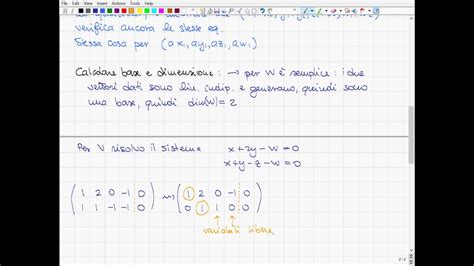 verifica ancora le stesse eq.
Stessa cosa per (ax₁, ay₁, az₁, aw₁)
Calcolare base e dimensione : → per W è semplice : i due
vettori dati sono lin. indip. e generano, quindi sono
una base, quindi dim(W)= 2
Per V risolvo il sistema x+2y-w=0
x+y-z-w=0
( 1 2 0 -1 | 0 ) ⇝ ( 1 2 0 -1 | 0 )
( 1 1 -1 -1 | 0 ) ( 0 1 1 0 | 0 )
variabili libere